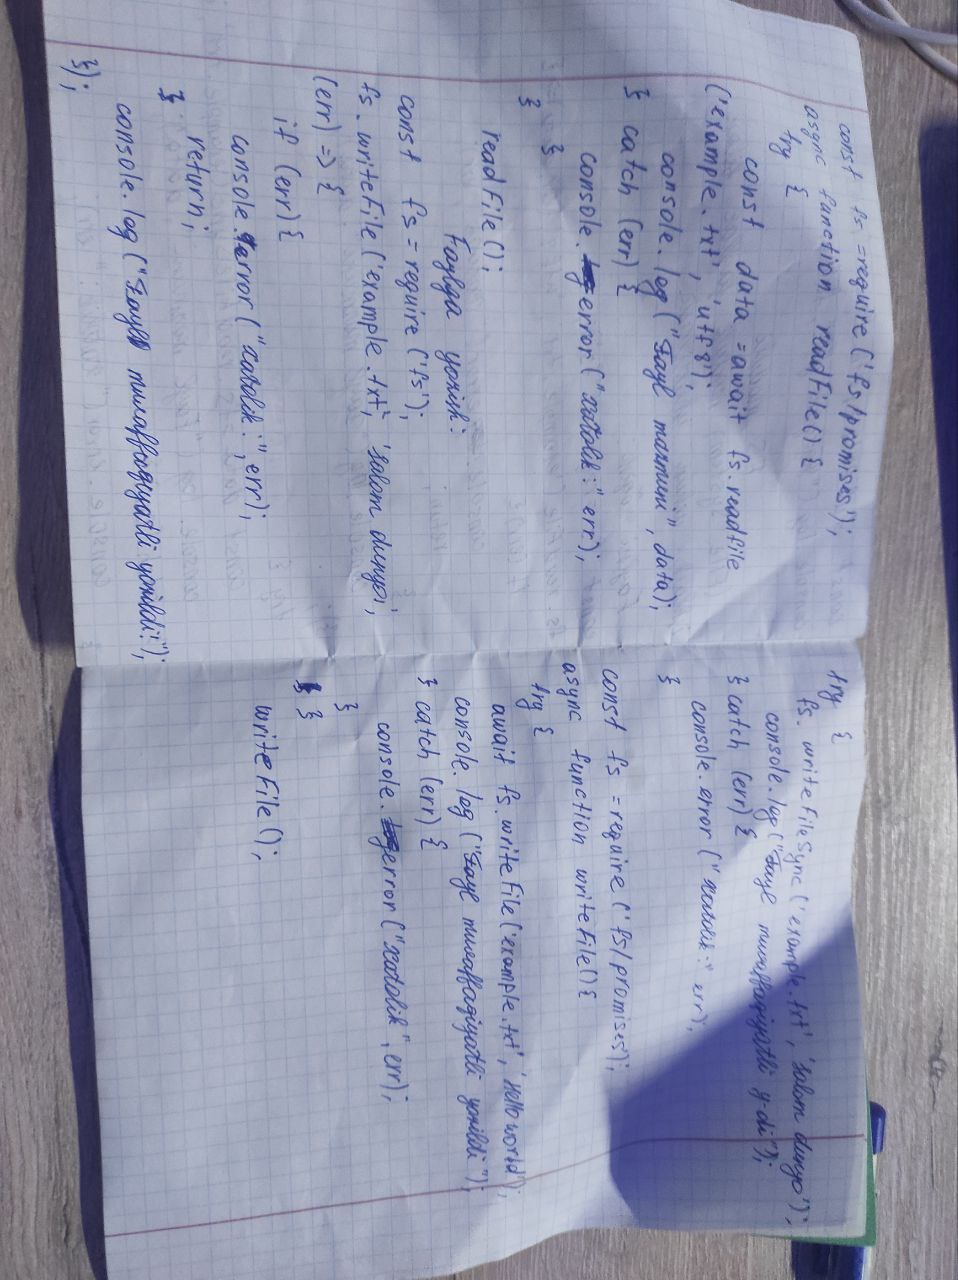 const fs = require ('fs/promises');
async function readFile() {
try {
const data = await fs.readfile
('example.txt', 'utf8');
console.log ("Fayl mazmuni", data);
} catch (err) {
console.error ("xatolik:" err);
}
}
readFile();
Faylga yozish:
const fs = require ('fs');
fs.writeFile ('example.txt', 'Salom dunyo',
(err) => {
if (err) {
console.error ("xatolik:", err);
return;
}
console.log ("Fayl muvaffaqiyatli yozildi!");
});
try {
fs.writeFileSync ('example.txt', 'Salom dunyo');
console.log ("Fayl muvaffaqiyatli y-di");
} catch (err) {
console.error ("xatolik:" err);
}
const fs = require ('fs/promises');
async function writeFile() {
try {
await fs.writeFile ('example.txt', 'Hello world');
console.log ("Fayl muvaffaqiyatli yozildi");
} catch (err) {
console.error ("xatolik", err);
}
}
writeFile();